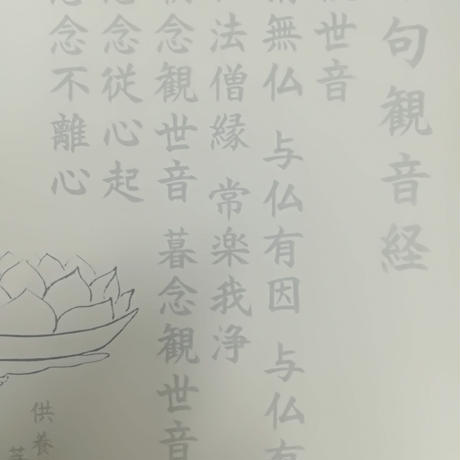 句観音経
世音
無仏 与仏有因 与仏有
法僧縁 常楽我浄
念観世音 暮念観世音
念従心起
念不離心
供養